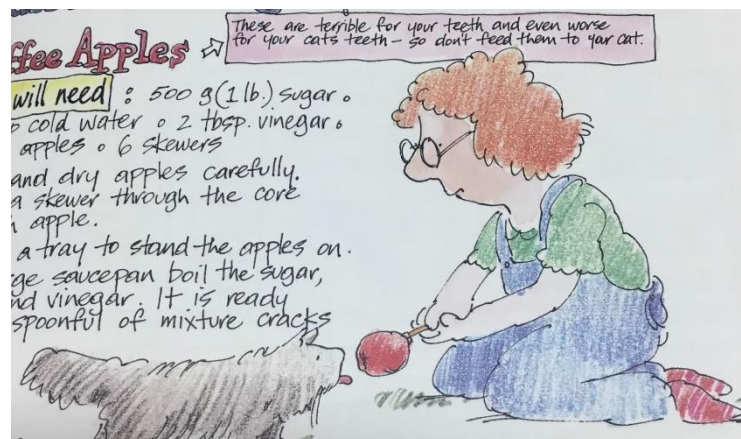 Apples
These are terrible for your teeth and even worse
for your cats teeth – so don't feed them to your cat.
will need : 500 g (1 lb.) sugar •
cold water • 2 tbsp. vinegar •
apples • 6 skewers
and dry apples carefully.
a skewer through the core
apple.
a tray to stand the apples on.
saucepan boil the sugar,
vinegar. It is ready
spoonful of mixture cracks